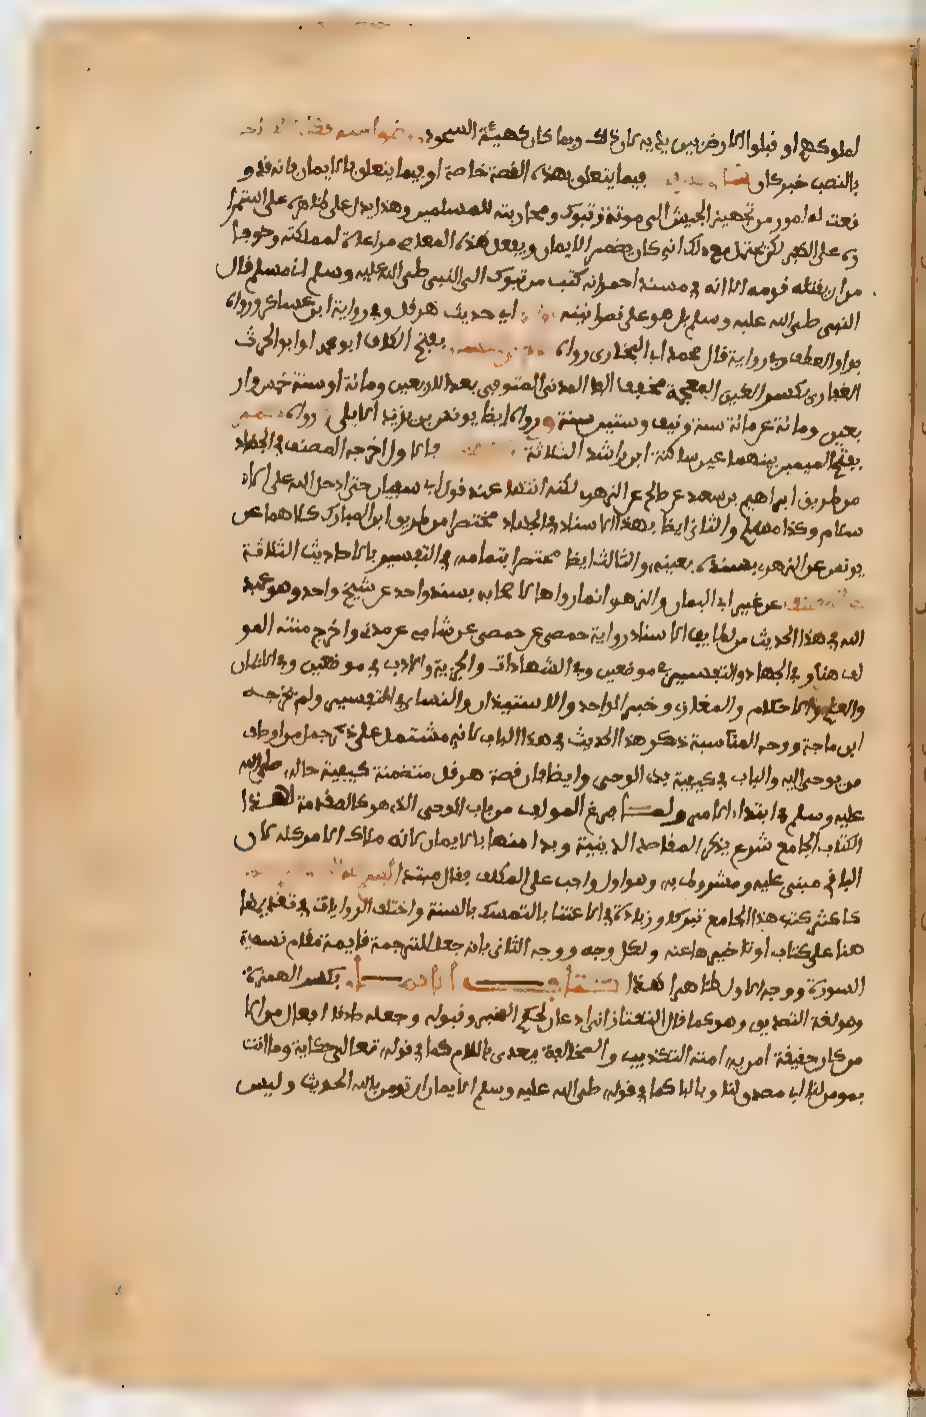 لملوكهم او قبلوا الارض بين يديه لان ذلك ربما كان كهيئة السجود
بالنصب خبر كان فيما يتعلق بهذه القصة خاصة او فيما يتعلق بالايمان فانه قد و
قعت له امور من تجهيز الجيش الى موتة وتبوك ومحاربته للمسلمين وهذا يدل على ظاهره على استمرا
ره على الكفر لكن يحتمل مع ذلك انه كان يضمر الايمان ويفعل هذه المعاصي مراعاة لمملكته وخوفا
من ان يقتله قومه الا انه في مسند احمد انه كتب من تبوك الى النبي صلى الله عليه وسلم اني مسلم فقال
النبي صلى الله عليه وسلم بل هو على نصرانيته اي حديث هرقل وفي رواية ابن عساكر ورواه
بواو العطف وفي رواية قال محمد اي البخاري رواه بفتح الكاف ابو محمد او ابو الحرث
الغفاري بكسر الغين المعجمة مخفف الفا المدني المتوفى بعد الاربعين ومائة او سنة خمس وار
بعين ومائة عن مائة سنة ونيف وستين سنة ورواه ايضا يونس بن يزيد الايلي رواه
بفتح الميمين بينهما عين ساكنة ابن راشد الثلاثة فالاول اخرجه المصنف في الجهاد
من طريق ابراهيم بن سعد عن صالح عن الزهري لكنه انتهى عند قول ابي سفيان حتى ادخل الله علي الا
سلام وكذا مسلم والثاني ايضا بهذا الاسناد في الجهاد مختصرا من طريق ابن المبارك كلاهما عن
يونس عن الزهري بسنده بعينه والثالث ايضا مختصرا بتمامه في التفسير بالاحاديث الثلاثة
عن غير ابي اليمان والزهري انما رواها لاصحابه بسند واحد عن شيخ واحد وهو عبيد
الله في هذا الحديث من لطايف الاسناد رواية حمصي عن حمصي عن شامي عن مدني واخرج متنه المو
لف هنا وفي الجهاد والتفسير في موضعين وفي الشهادات والجزية والادب في موضعين وفي الايمان
والعلم والاحكام والمغازي وخبر الواحد والاستيذان والنسائي في التفسير ولم يخرجه
ابن ماجة ووجه المناسبة ذكر هذا الحديث في هذا الباب لانه مشتمل على ذكر جمل من اوصاف
من يوحى اليه والباب في كيفية بدء الوحي وايضا فان قصة هرقل متضمنة كيفية حاله صلى الله
عليه وسلم في ابتداء الامر ولما فرغ المولف من باب الوحي الذي هو كالمقدمة لهذا
الكتاب الجامع شرع يذكر المقاصد الدينية وبدا منها بالايمان لانه ملاك الامر كله لان
الباقي مبني عليه ومشروط به وهو اول واجب على المكلف فقال مبتدا
كاكثر كتب هذا الجامع تبركا وزيادة في الاعتنا بالتمسك بالسنة واختلف الروايات في تقديمها
هنا على كتاب او تاخيرها عنه ولكل وجه ووجه الثاني بانه جعل الترجمة قايمة مقام تسمية
السورة ووجه الاول ظاهر لهذا كتاب الايمان بكسر الهمزة
وهو لغة التصديق وهو كما قال التفتازاني اذعان لحكم المخبر وقبوله وجعله صادقا افعال من الا
من كان حقيقة امن به امنه التكذيب والمخالفة يعدى باللام كما في قوله تعالى حكاية وما انت
بمومن لنا اي مصدق لنا وبالبا كما في قوله صلى الله عليه وسلم الايمان ان تومن بالله الحديث وليس